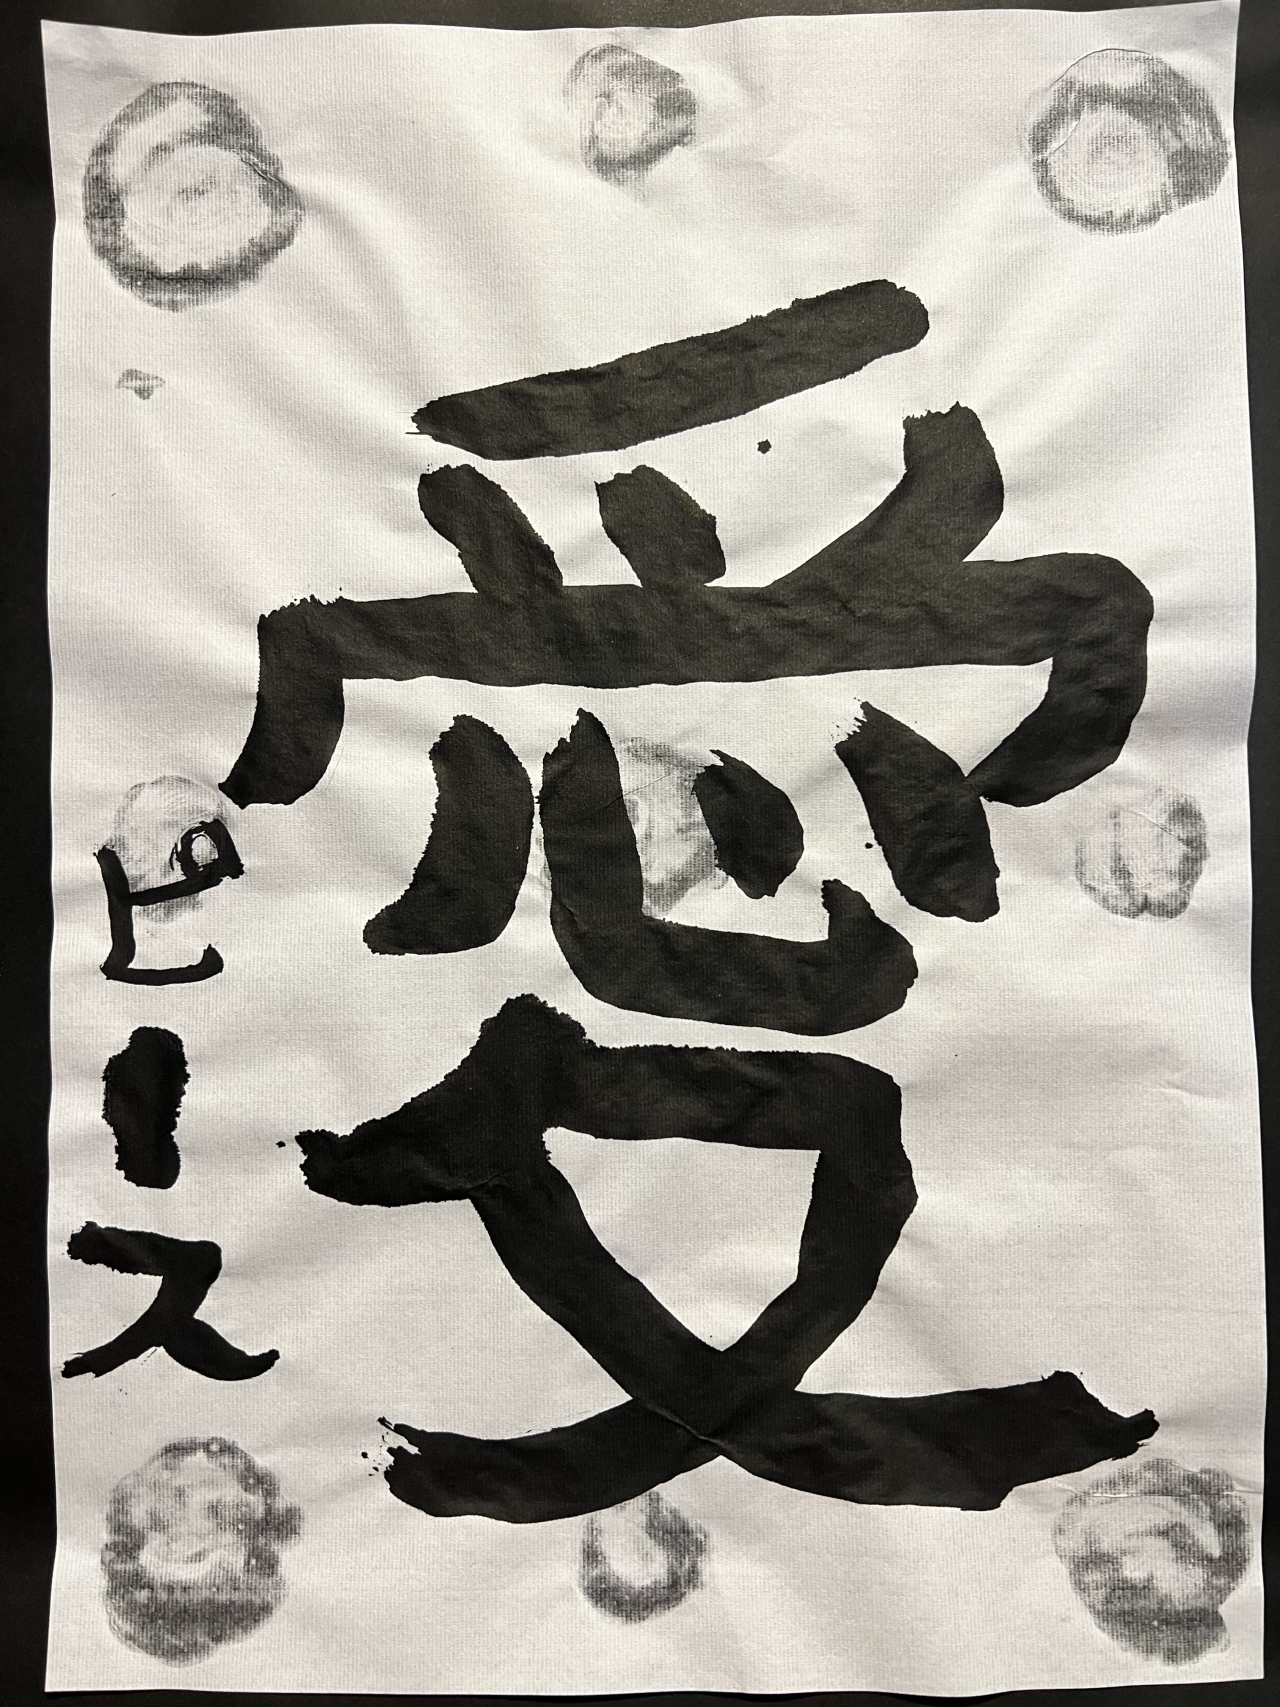 愛
ピース